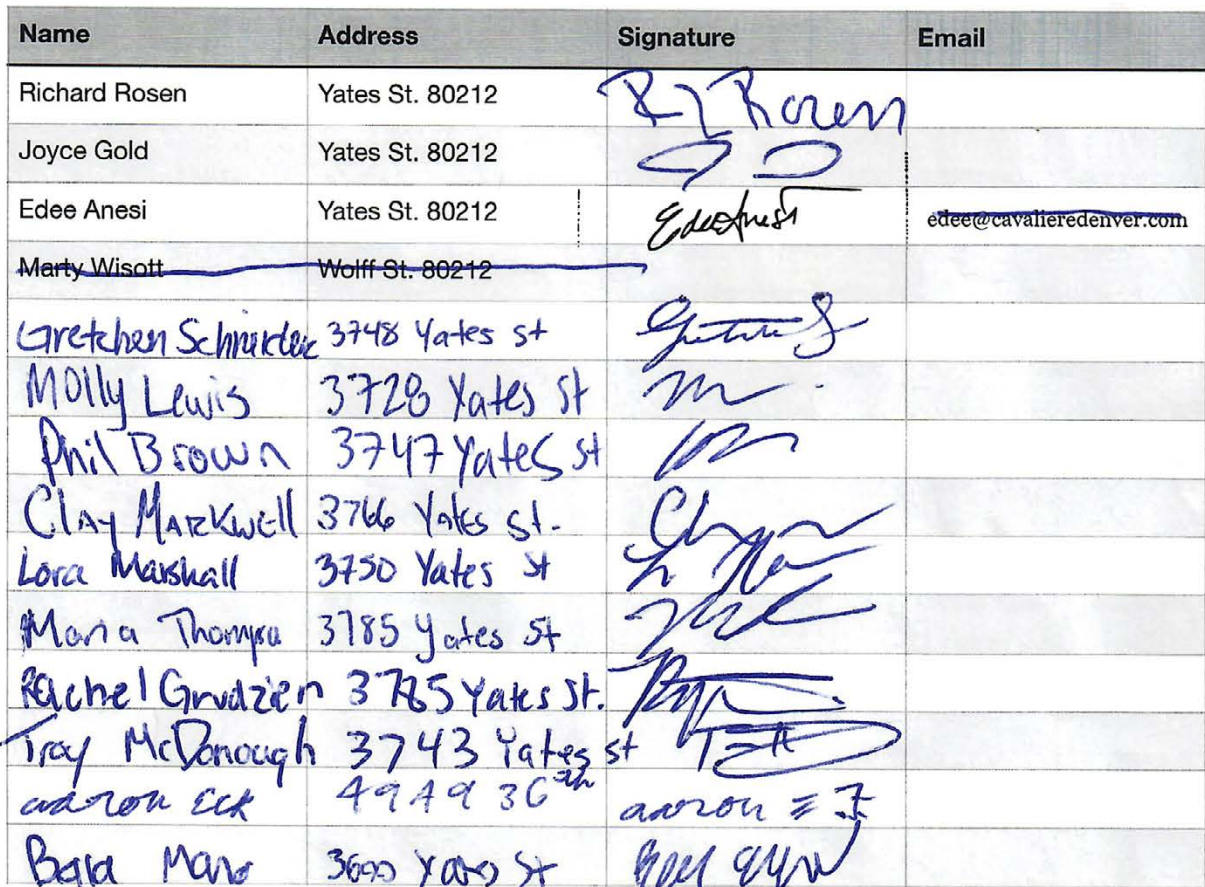 Name Address Signature Email
Richard Rosen Yates St. 80212 RJ Rosen
Joyce Gold Yates St. 80212
Edee Anesi Yates St. 80212 Edee Anesi edee@cavalieredenver.com
Marty Wisott Wolff St. 80212
Gretchen 3748 Yates st
Molly Lewis 3728 Yates St
Phil Brown 3747 Yates st
Clay Markwell 3766 Yates St.
Lora Marshall 3750 Yates St
Maria 3785 Yates St
Rachel Grudzien 3785 Yates St.
Troy McDonough 3743 Yates st
aaron Eck 4949 36th aaron
St